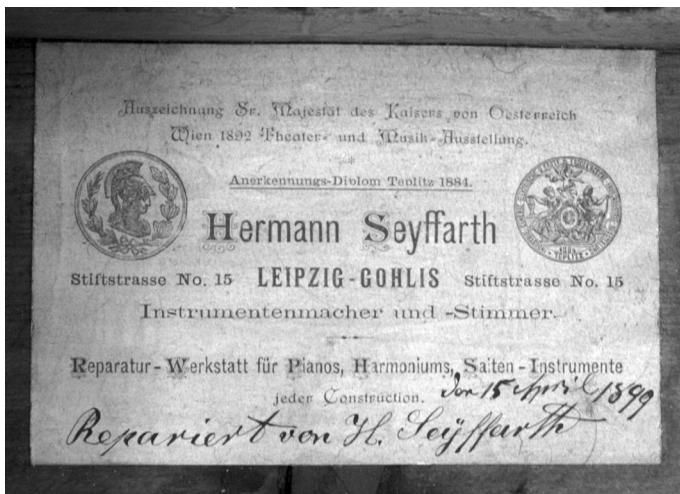 Auszeichnung Sr. Majestät des Kaisers von Oesterreich
Wien 1892 Theater- und Musik-Ausstellung.
Anerkennungs-Diplom Teplitz 1884.
Hermann Seyffarth
Stiftstrasse No. 15 LEIPZIG-GOHLIS Stiftstrasse No. 15
Instrumentenmacher und -Stimmer.
Reparatur-Werkstatt für Pianos, Harmoniums, Saiten-Instrumente
jeder Construction.
den 15 April 1899
Repariert von H. Seyffarth
1884
TEPLITZ